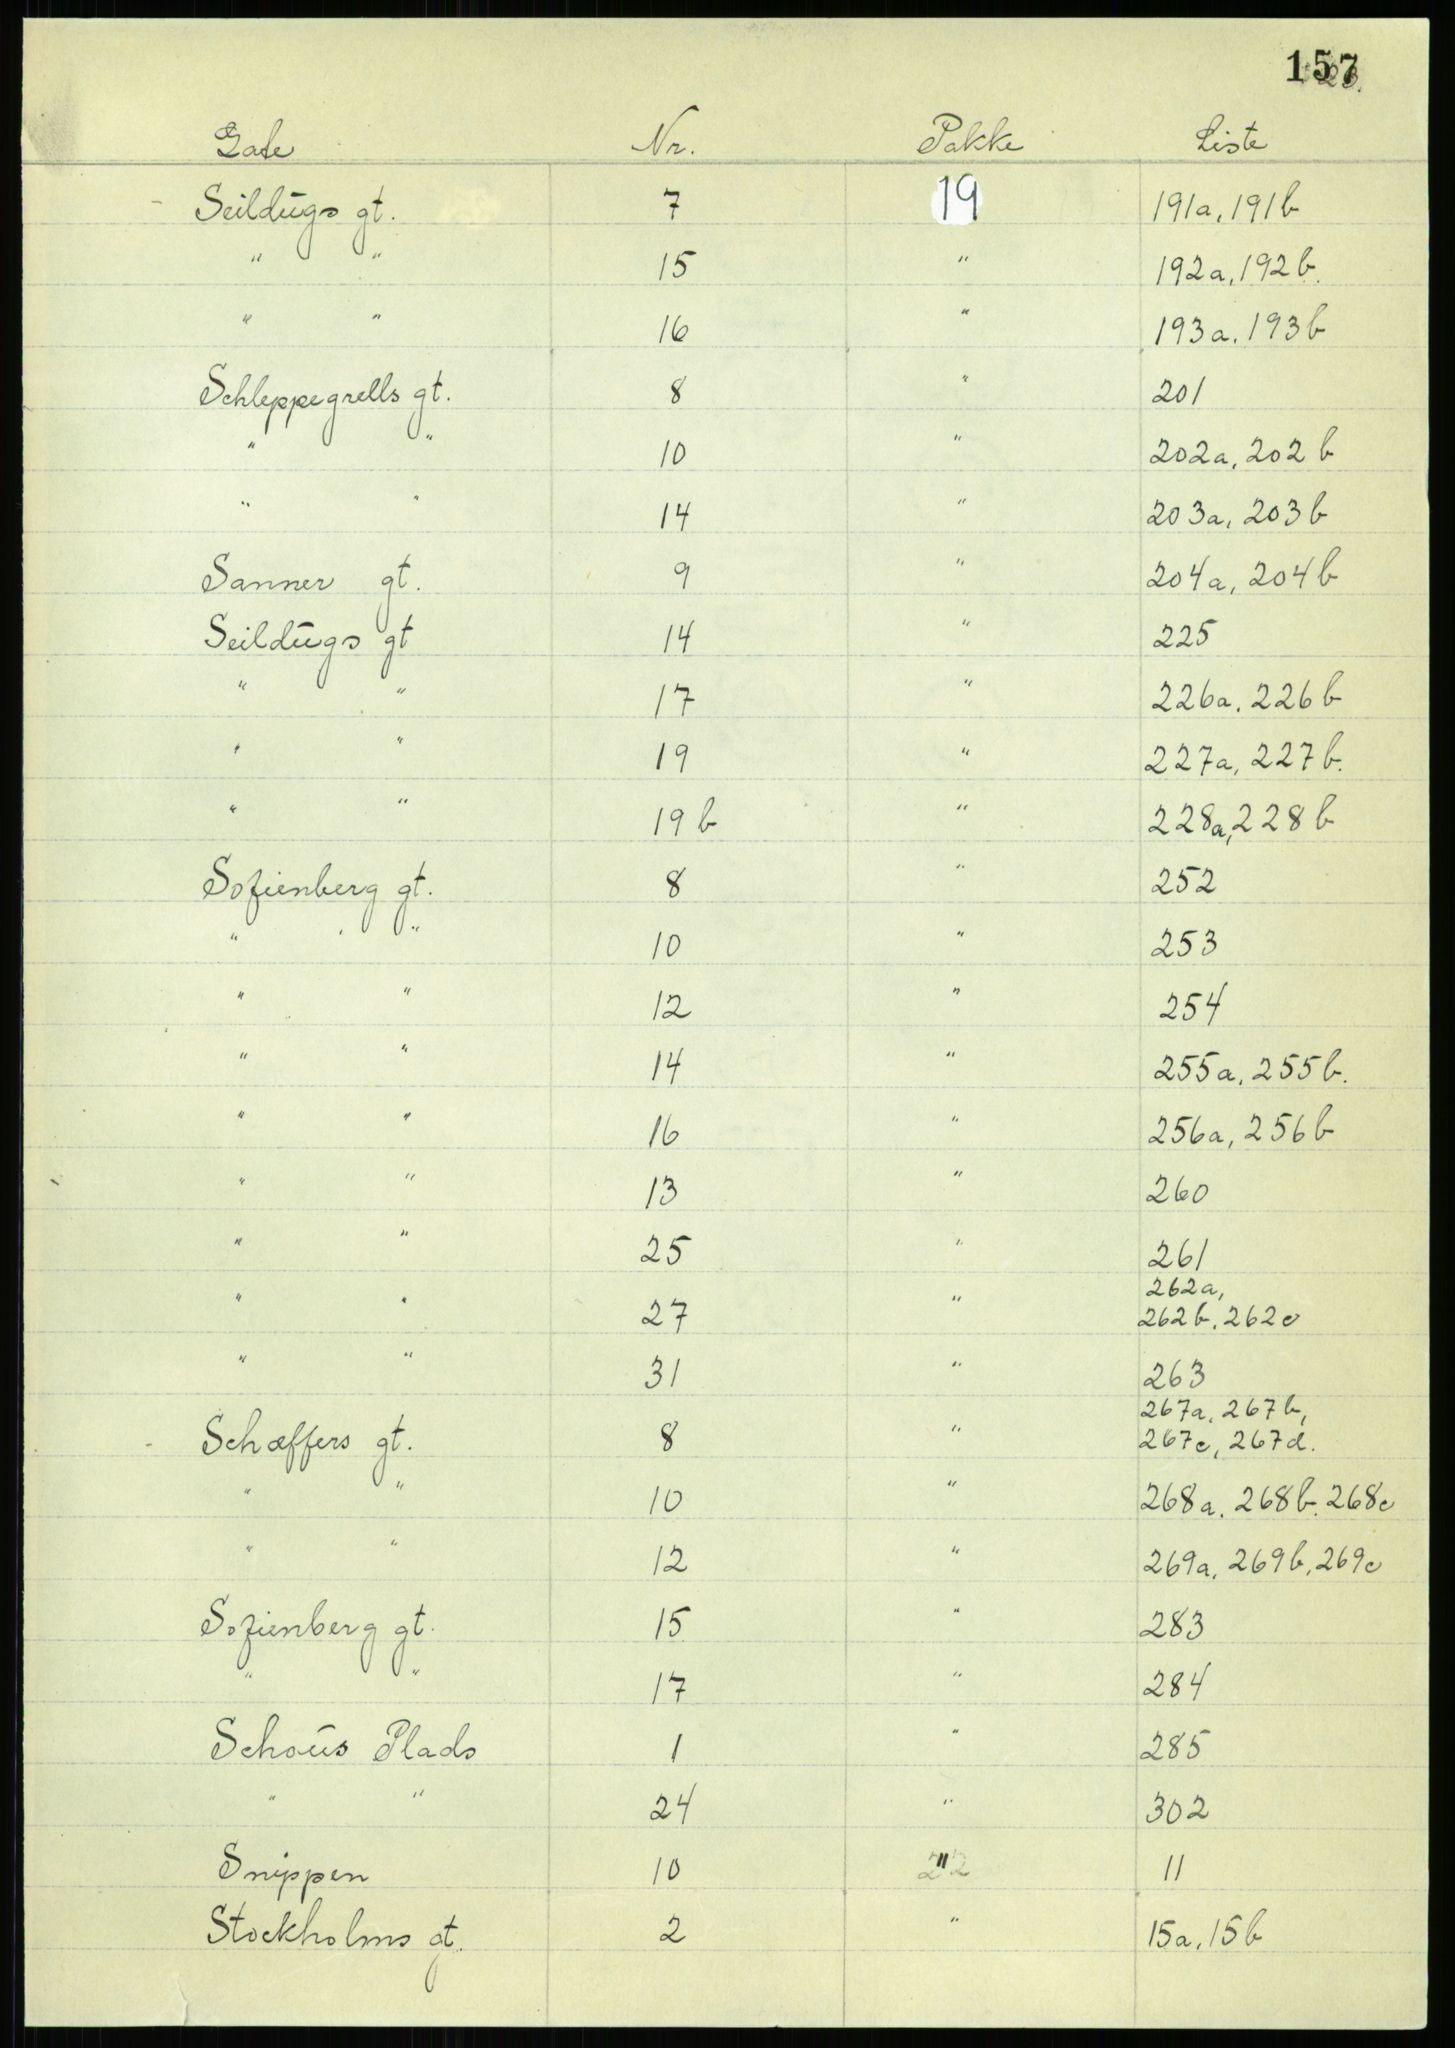 157
Gate Nr. Pakke Liste
Seildūgs gt. 7 19 191a, 191b
" " 15 " 192a, 192b.
" " 16 " 193a, 193b
Schleppegrells gt. 8 " 201
" " 10 " 202a, 202b
" " 14 " 203a, 203b
Sanner gt. 9 " 204a, 204b
Seildūgs gt 14 " 225
" " 17 " 226a, 226b
" " 19 " 227a, 227b.
" " 19b " 228a, 228b
Sofienberg gt. 8 " 252
" " 10 " 253
" " 12 " 254
" " 14 " 255a, 255b.
" " 16 " 256a, 256b
" " 13 " 260
" " 25 " 261
262a,
" " 27 " 262b, 262c
" " 31 " 263
267a, 267b,
Schæffers gt. 8 " 267c, 267d.
" " 10 " 268a, 268b, 268c
" " 12 " 269a, 269b, 269c
Sofienberg gt. 15 " 283
" " 17 " 284
Schoūs Plads 1 " 285
" " 24 " 302
Snippen 10 " 11
Stockholms gt. 2 " 15a, 15b